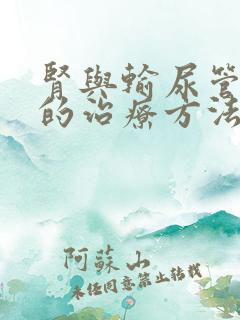 腎與輸尿管
的治療方法
阿蘇山
未经同意禁止转载